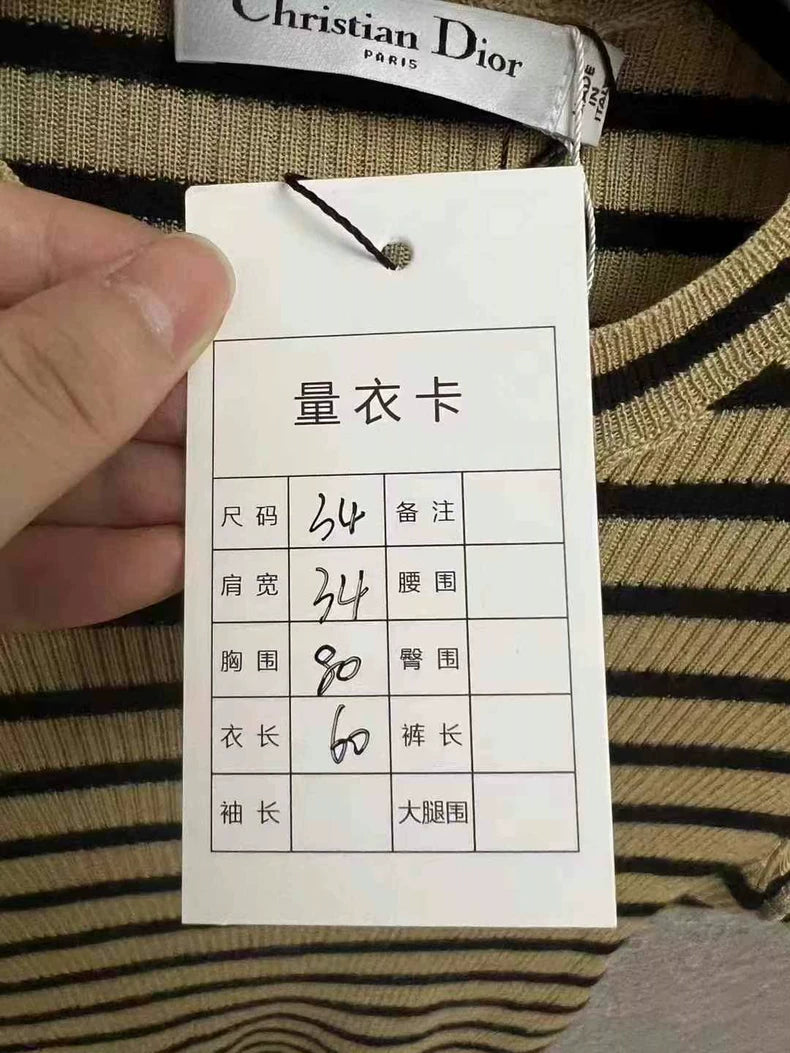 Christian Dior
PARIS
MADE
IN
ITALY
量衣卡
尺码 34 备注
肩宽 34 腰围
胸围 80 臀围
衣长 60 裤长
袖长 大腿围